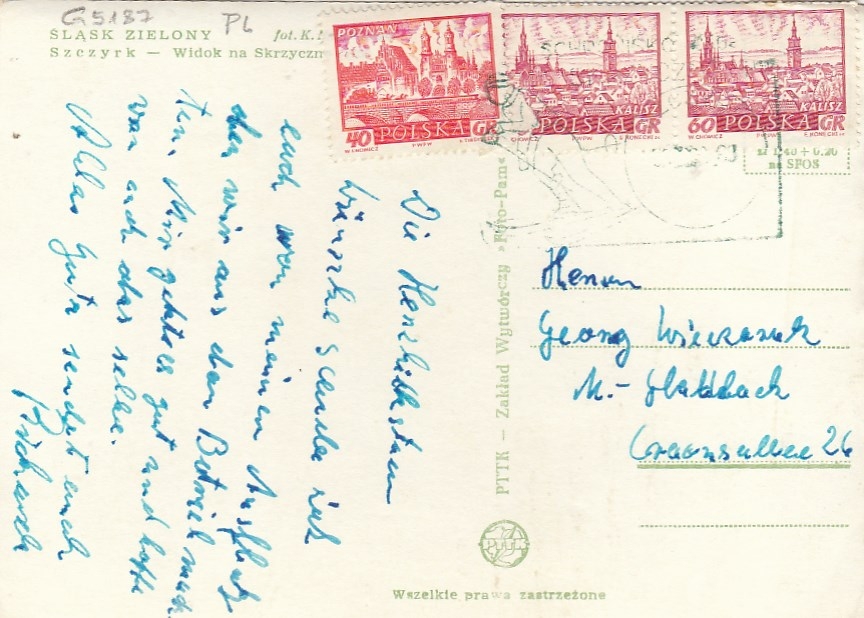 G5187 PL
ŚLĄSK ZIELONY fot. K.
Szczyrk — Widok na Skrzyczn
POZNAŃ
40 POLSKA GR
KALISZ
POLSKA GR
KALISZ
60 POLSKA GR
zł 1,40 + 0,20
na SFOS
Die Herzlichsten
Wünsche sende ich
euch von meinen Ausflug
den wir aus dem Betrieb mach
ten. Mir geht es gut und hoffe
von euch das selbe.
Alles Gute sendet euch
Richard
PTTK — Zakład Wytwórczy »Foto-Pam
Herrn
Georg Wieczorek
M.-Gladbach
26
PTTK
Wszelkie prawa zastrzeżone